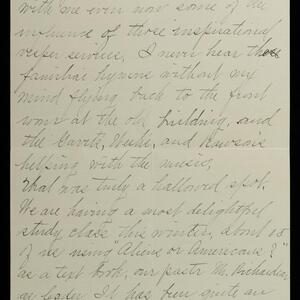 with me even now some of the
influence of those inspirational
vesper services. I never hear those
familiar hymns without my
mind flying back to the front
room at the old building, and
the Gavits, Weeks, and Rawsons
helping with the music.
That was truly a hallowed spot.
We are having a most delightful
study class this winter, about 15
of us using "Aliens or Americans?"
as a text book, our pastor Mr. Richardson
as leader. It has been quite an